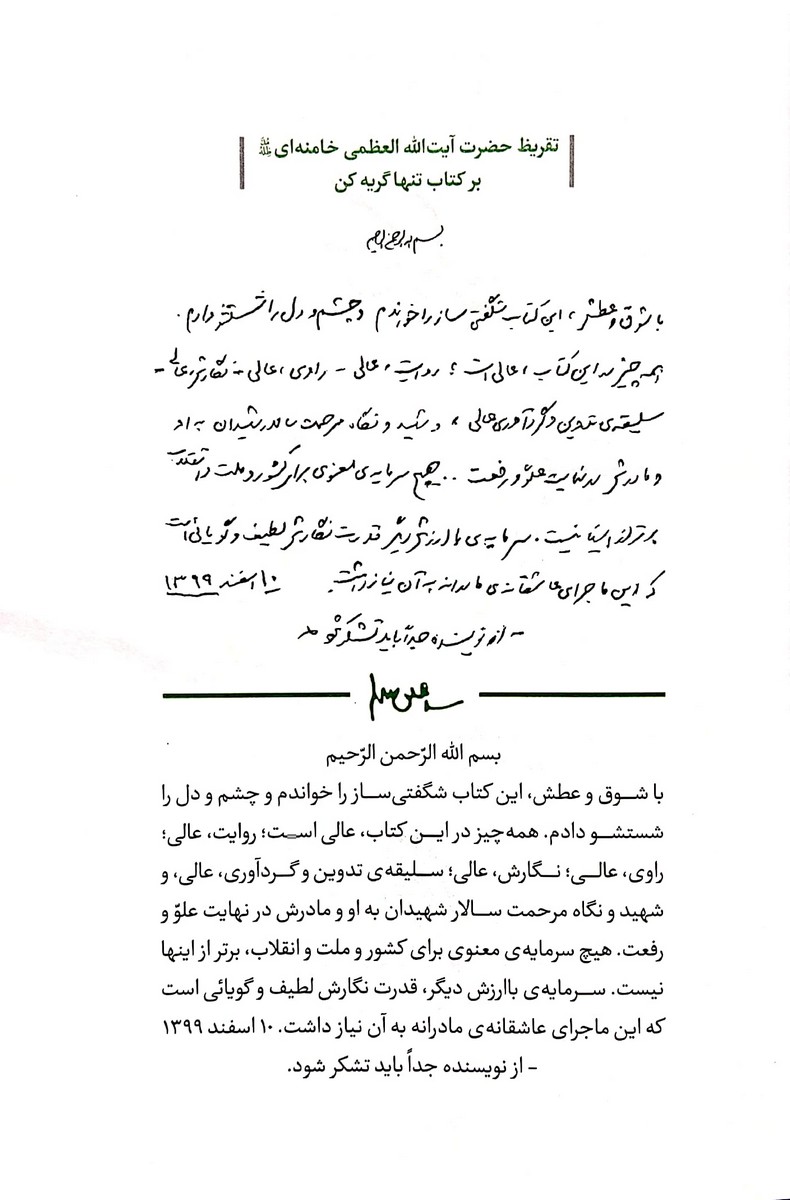 تقریظ حضرت آیت‌الله العظمی خامنه‌ای
بر کتاب تنها گریه کن
بسم الله الرحمن الرحیم
با شوق و عطش، این کتاب شگفتی ساز را خواندم و چشم و دل را شستشو دادم.
همه چیز در این کتاب، عالی است؛ روایت، عالی - راوی، عالی - نگارش، عالی -
سلیقه‌ی تدوین و گردآوری، عالی، و شهید و نگاه مرحمت سالار شهیدان به او
و مادرش در نهایت علوّ و رفعت .. هیچ سرمایه‌ی معنوی برای کشور و ملت و انقلاب
برتر از اینها نیست. سرمایه‌ی با ارزش دیگر قدرت نگارش لطیف و گویائی است
که این ماجرای عاشقانه‌ی مادرانه به آن نیاز داشت. ۱۰ اسفند ۱۳۹۹
- از نویسنده جداً باید تشکر شود
بسم الله الرّحمن الرّحیم
با شوق و عطش، این کتاب شگفتی‌ساز را خواندم و چشم و دل را
شستشو دادم. همه‌چیز در این کتاب، عالی است؛ روایت، عالی؛
راوی، عالی؛ نگارش، عالی؛ سلیقه‌ی تدوین و گردآوری، عالی، و
شهید و نگاه مرحمت سالار شهیدان به او و مادرش در نهایت علوّ و
رفعت. هیچ سرمایه‌ی معنوی برای کشور و ملت و انقلاب، برتر از اینها
نیست. سرمایه‌ی باارزش دیگر، قدرت نگارش لطیف و گویائی است
که این ماجرای عاشقانه‌ی مادرانه به آن نیاز داشت. ۱۰ اسفند ۱۳۹۹
- از نویسنده جداً باید تشکر شود.